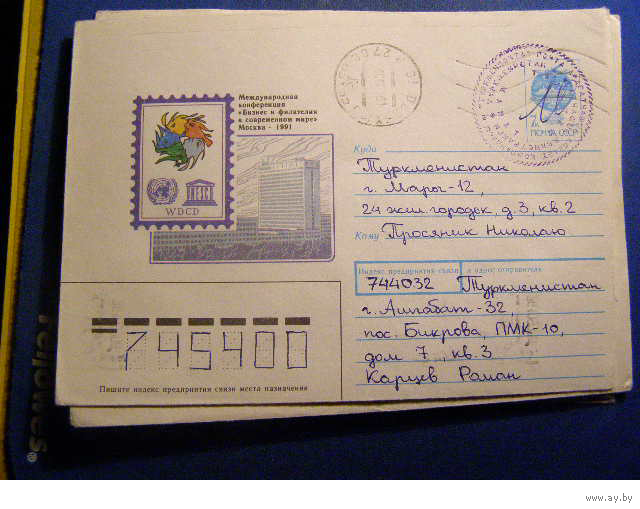 Международная
конференция
«Бизнес и филателия
в современном мире»
Москва - 1991
WDCD
ПОЧТА СССР
Куда
Туркменистан
г. Мары-12,
24 жил. городок, д. 3, кв. 2
Кому Просяник Николаю
Индекс предприятия связи и адрес отправителя
744032 Туркменистан
г. Ашгабат-32,
пос. Бикрова ПМК-10,
дом 7, кв. 3
Карцев Роман
745400
Пишите индекс предприятия связи места назначения
www.ay.by